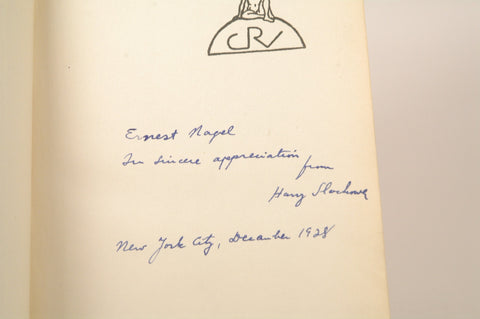 CRV
Ernest Nagel
In sincere appreciation
from
Harry Slochower
New York City, December 1928